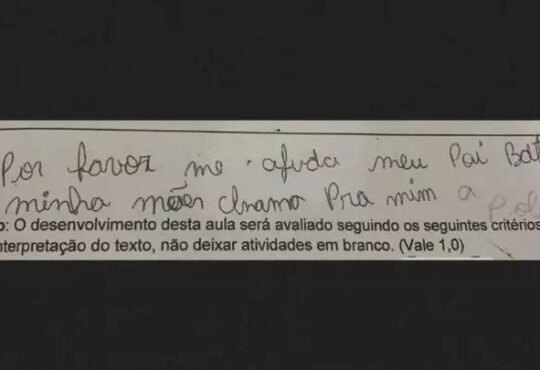 Por favor me ajuda meu Pai Bat
minha mãe chama Pra mim a Pol
o: O desenvolvimento desta aula será avaliado seguindo os seguintes critérios
nterpretação do texto, não deixar atividades em branco. (Vale 1,0)